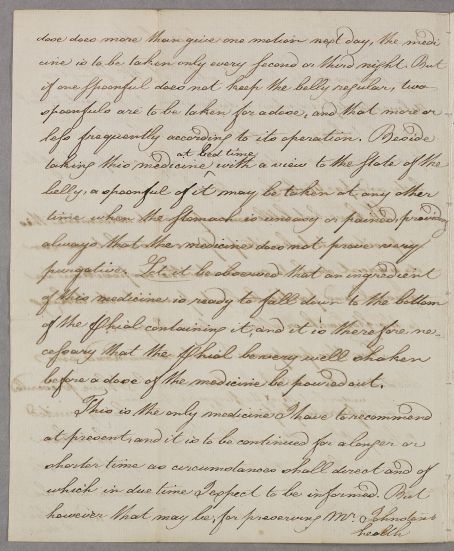 dose does more than give one motion next day, the medi
cine is to be taken only every second or third night. But
if one spoonful does not keep the belly regular, two
spoonfuls are to be taken for a dose, and that more or
less frequently according to its operation. Beside
at bed time
taking this medicine with a view to the State of the
belly, a spoonful of it may be taken at any other
time when the Stomach is uneasy or pained, providing
always that the medicine does not prove very
purgative. Let it be observed that an ingredient
of this medicine is ready to fall down to the bottom
of the Phial containing it, and it is therefore ne-
cessary that the Phial be very well shaken
before a dose of the medicine be poured out.
This is the only medicine I have to recommend
at present, and it is to be continued for a longer or
shorter time as circumstances shall direct and of
which in due time I expect to be informed. But
however that may be, for preserving Mr. Johnston's
health